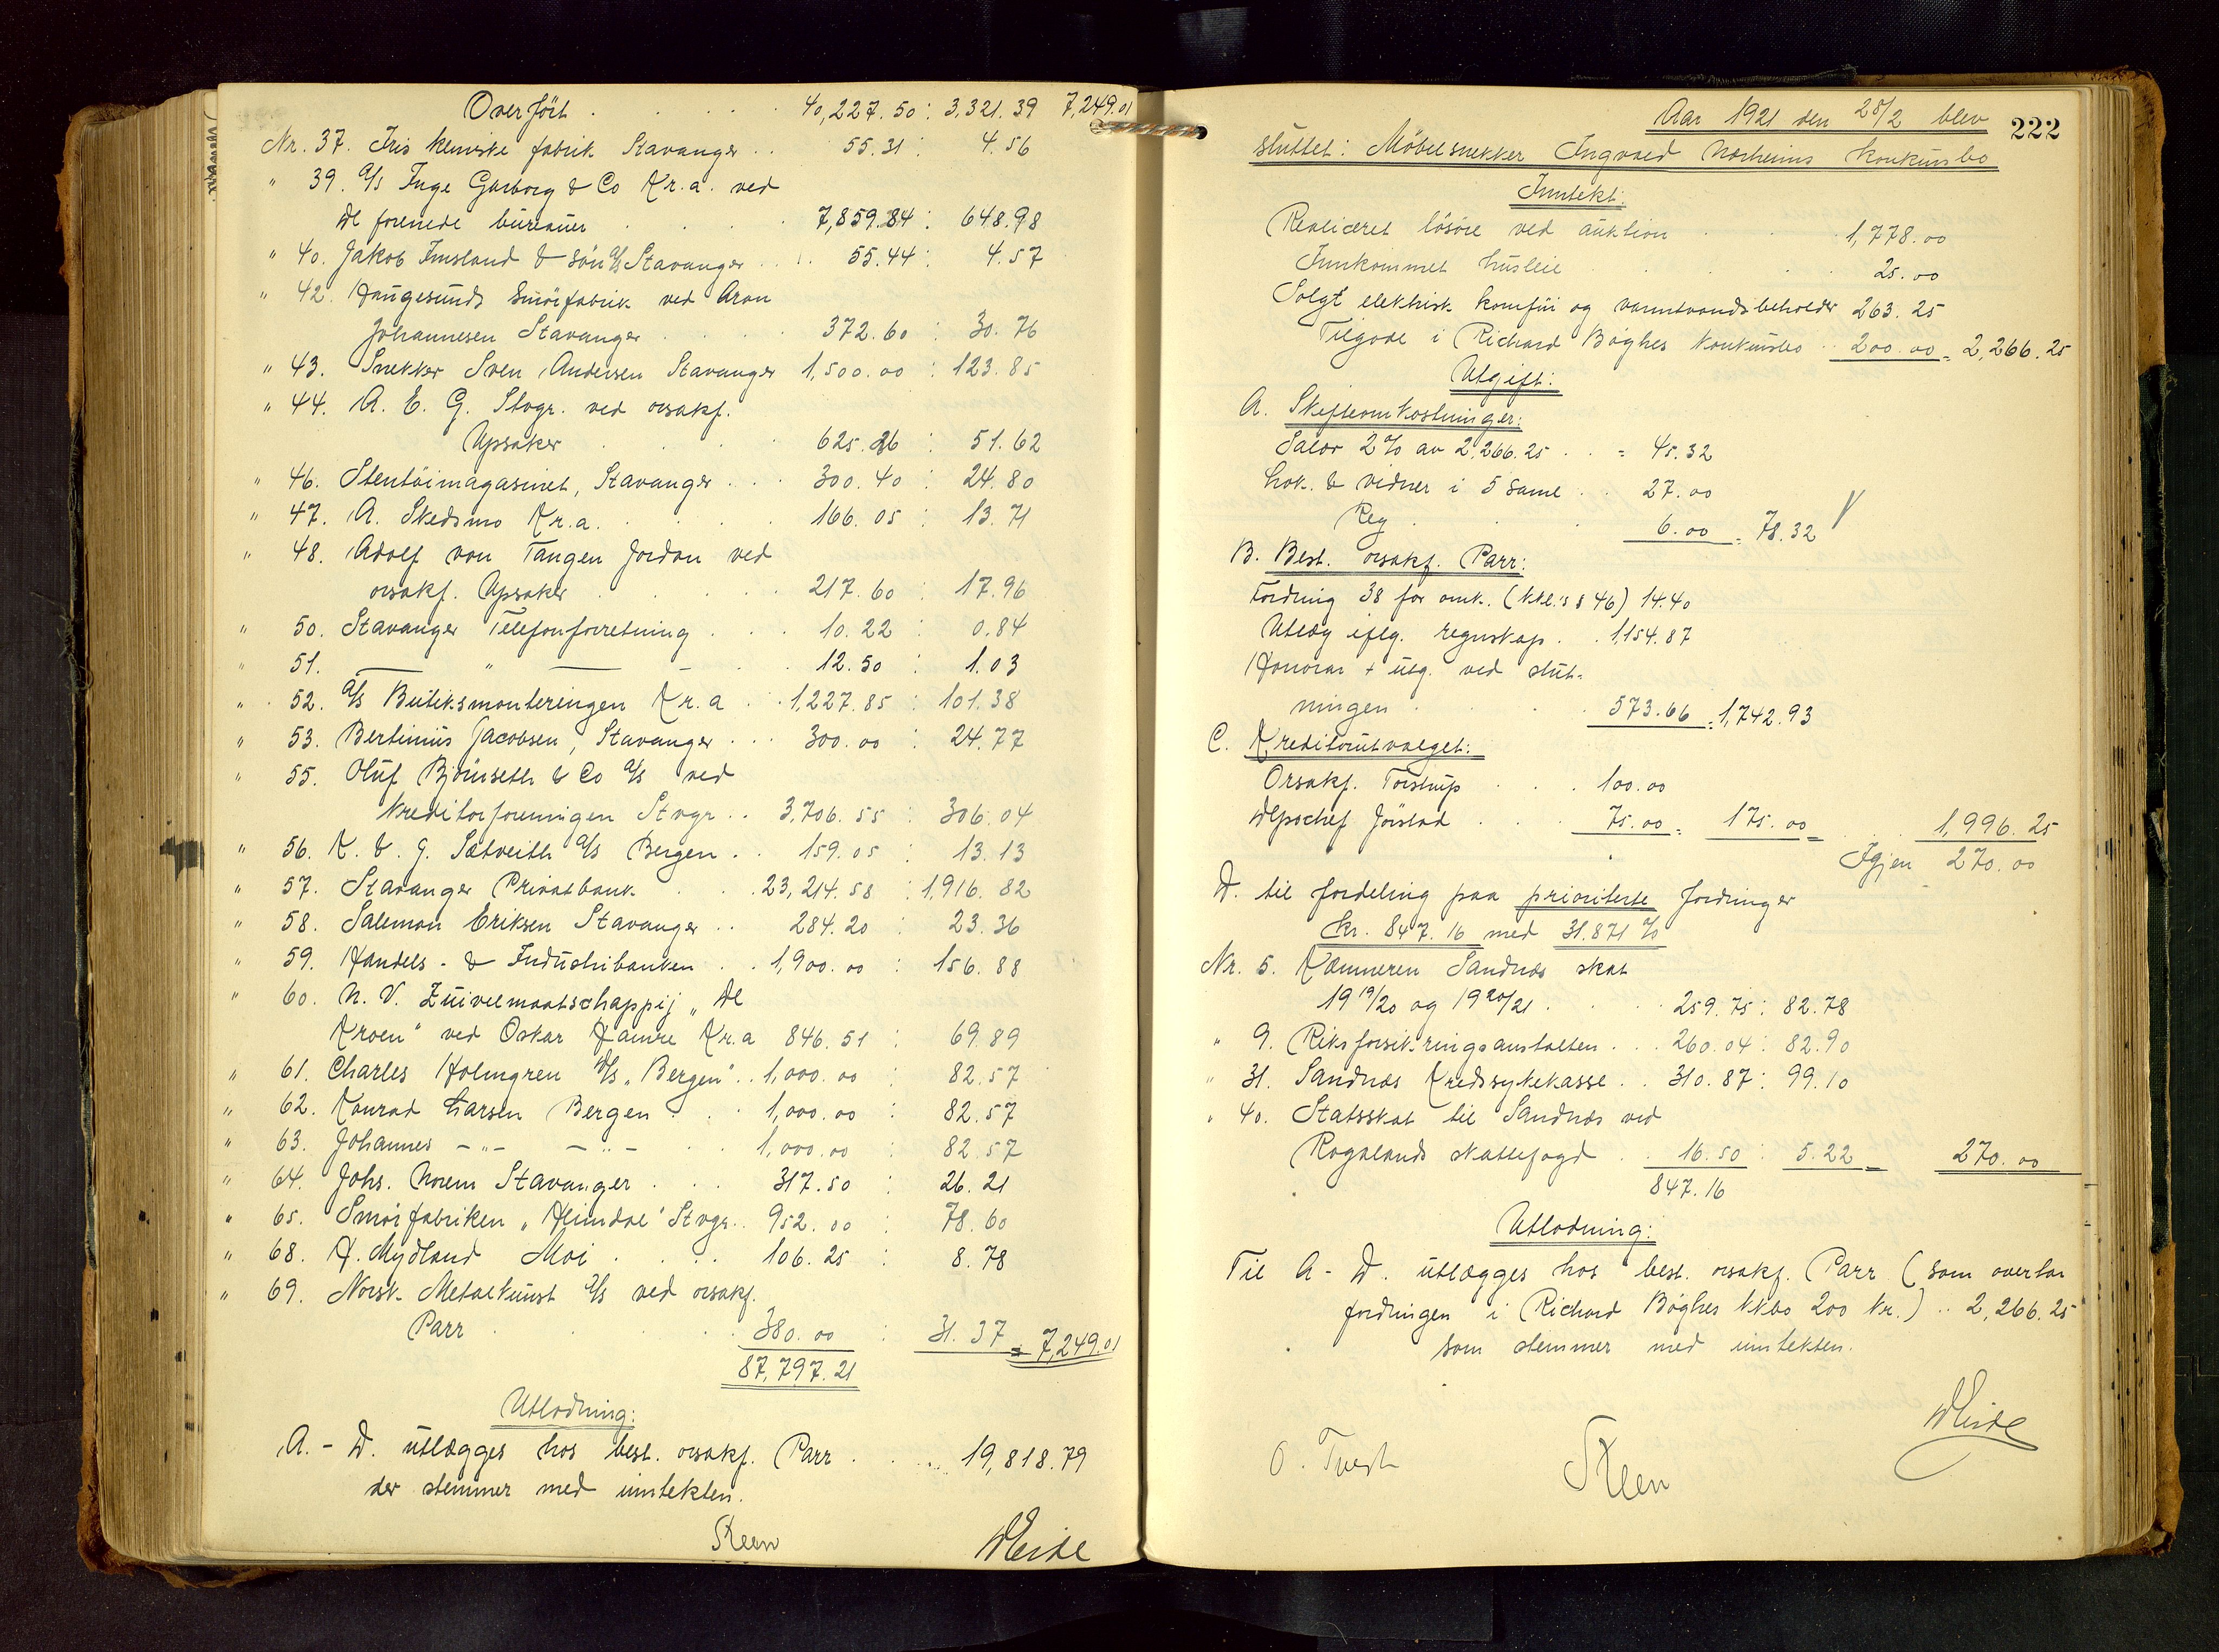 Overført . . . . 40,227.50 : 3,321.39 7,249.01
Nr. 37. Iris kemiske fabrik Stavanger . . 55.31 . 4.56
" 39. A/S Inge Garborg & Co Kr.a. ved
De forenede bureauer . . . . 7,859.84 : 648.98
" 40. Jakob Imsland & Søn A/S Stavanger . . 55.44 : 4.57
" 42. Haugesunds Smørfabrik ved Aron
Johannesen Stavanger . . . 372.60 : 30.76
" 43. Snekker Sven Andersen Stavanger 1,500.00 : 123.85
" 44. A. E. G. Stvgr. ved orsakf.
Upsaker . . . 625.26 : 51.62
" 46. Stentøimagasinet, Stavanger . . . 300.40 : 24.80
" 47. A. Skedsmo Kr.a. . . . 166.05 : 13.71
" 48. Adolf von Tangen Jordan ved
orsakf. Upsaker . . . 217.60 : 17.96
" 50. Stavanger Telefonforretning . . . 10.22 : 0.84
" 51. — " — - . . 12.50 : 1.03
" 52. A/S Butiksmonteringen Kr.a . . 1,227.85 : 101.38
" 53. Bertinius Jacobsen, Stavanger . . . 300.00 : 24.77
" 55. Oluf Bjørnseth & Co A/S ved
Kreditorforeningen Stvgr. . 3,706.55 : 306.04
" 56. K. & G. Sætveith A/S Bergen . . 159.05 : 13.13
" 57. Stavanger Privatbank . . . 23,214.58 : 1,916.82
" 58. Salemon Eriksen Stavanger . . 284.20 : 23.36
" 59. Handels- & Industribanken . . 1,900.00 : 156.88
" 60. N. V. Zuivelmaatschappij „De
Kroen" ved Oskar Hamre Kr.a 846.51 : 69.89
" 61. Charles Holmgren D/S „Bergen" . . 1,000.00 : 82.57
" 62. Konrad Larsen Bergen . . . 1,000.00 : 82.57
" 63. Johannes - " - - " - . . 1,000.00 : 82.57
" 64. Johs. Norem Stavanger . . . 317.50 : 26.21
" 65. Smørfabriken „Heimdal" Stvgr. . 952.00 : 78.60
" 68. H. Mydland Moi . . . . 106.25 : 8.78
" 69. Norsk Metalkunst A/S ved orsakf.
Parr . . . . 380.00 : 31.37 = 7,249.01
87,797.21
Utlodning:
A. - D. utlægges hos best. orsakf. Parr . . . . 19,818.79
der stemmer med inntekten.
Steen
Aar 1921 den 28/2 blev 222
sluttet: Møbelsnekker Ingvald Norheims konkursbo
Inntekt:
Realiceret løsøre ved auktion . . . 1,778.00
Innkommet husleie . . . . 25.00
Solgt elektrisk komfür og varmtvandsbeholder 263.25
Tilgode i Richard Bøghes konkursbo . . 200.00 = 2,266.25
Utgift:
A. Skifteomkostninger:
Salær 2% av 2,266.25 . . = 45.32
Lok. & vidner i 5 saml . . 27.00
Reg . . 6.00 = 78.32
B. Best. orsakf. Parr:
Fordring 38 for omk. (kkl.'s § 46) 14.40
Utlæg iflg. regnskap . . 1,154.87
Honorar + utg. ved slut-
ningen . . . . 573.66 = 1,742.93
C. Kreditorutvalget:
Orsakf. Torstrup . . . 100.00
Depochef Jørstad . . . 75.00 = 175.00 = . . 1,996.25
Igjen 270.00
D. til fordeling paa prioriterte fordringer
kr. 847.16 med 31.871 %
Nr. 5. Kæmneren Sandnes skat
1919/20 og 1920/21 . . . 259.75 : 82.78
" 9. Riksforsikringsanstalten . . . 260.04 : 82.90
" 31. Sandnes Kredssykekasse . . 310.87 : 99.10
" 40. Statsskat til Sandnes ved
Rogalands skattefogd . . 16.50 : 5.22 = 270.00
847.16
Utlodning:
Til A - D. utlægges hos best. orsakf. Parr (som overtar
fordringen i Richard Bøghes kkbo 200 kr.) . . 2,266.25
som stemmer med inntekten.
Steen